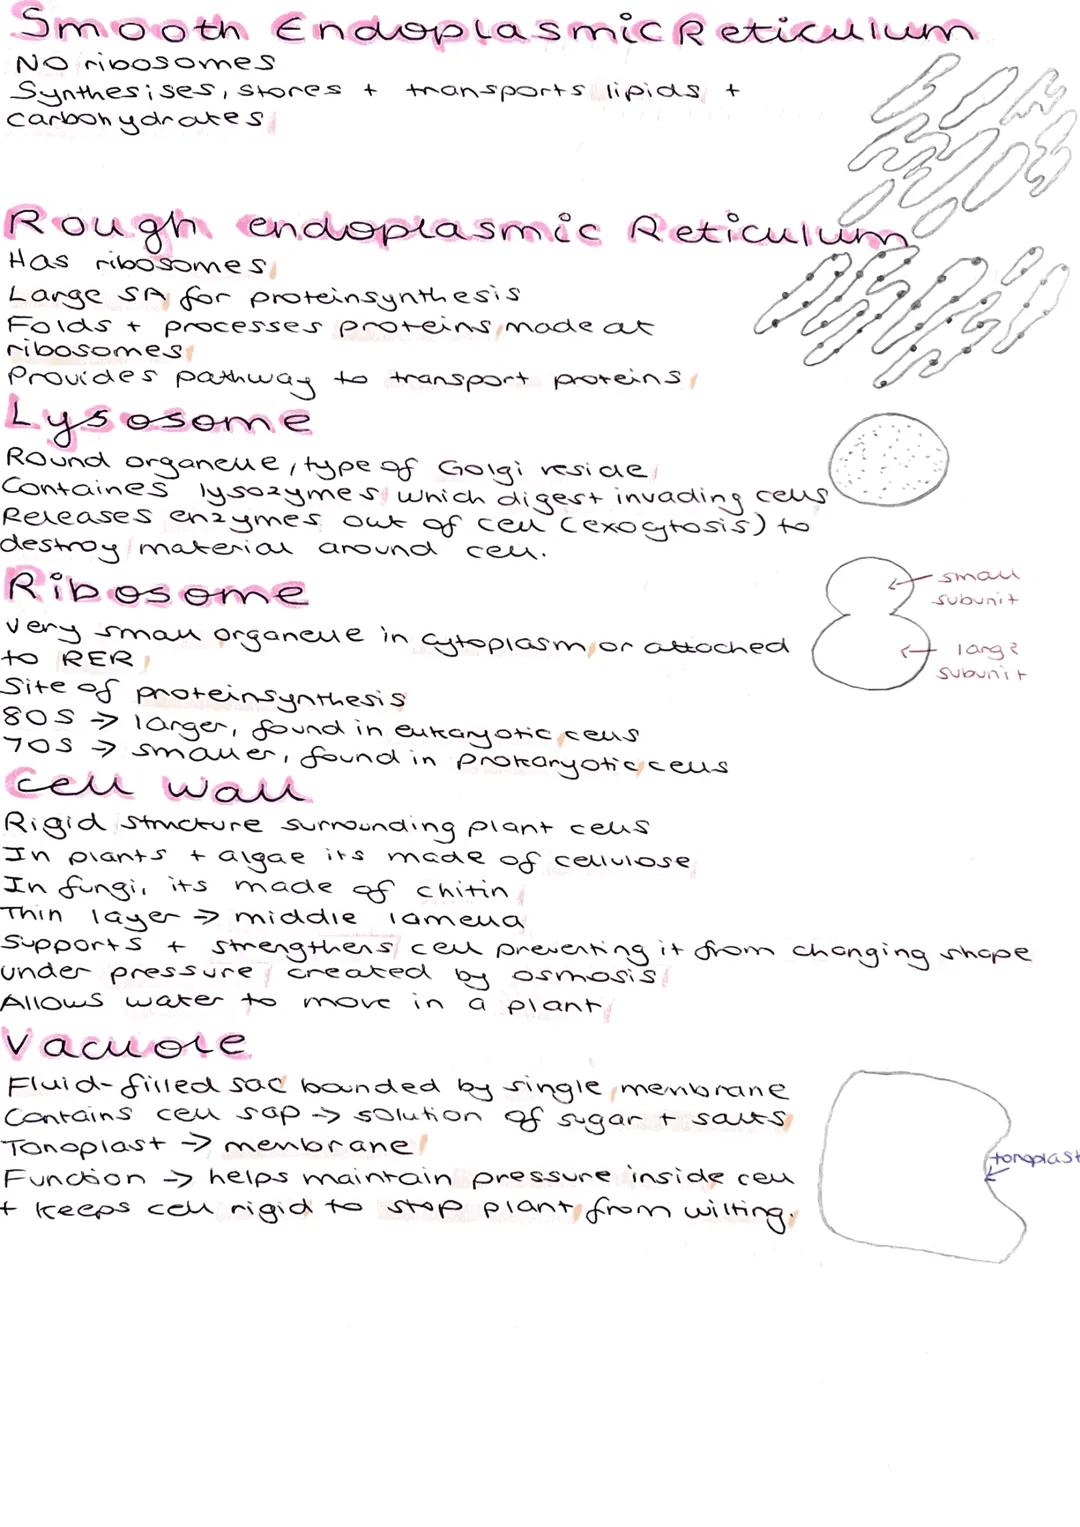 Smooth Endoplasmic Reticulum
No ribosomes
Synthesises, stores + transports lipids +
carbohydrates
Rough endoplasmic Reticulum
Has ribosomes
Large SA for protein synthesis
Folds + processes proteins made at
ribosomes
Provides pathway to transport proteins
Lysosome
Round organelle, type of Golgi vesicle
Containes lysozymes which digest invading cells
Releases enzymes out of cell (exocytosis) to
destroy material around cell.
Ribosome
small
subunit
very small organelle in cytoplasm or attached
to RER
large
subunit
Site of protein synthesis
80S → larger, found in eukaryotic cells
70S → smaller, found in prokaryotic cells
Cell wall
Rigid structure surrounding plant cells
In plants + algae its made of cellulose
In fungi, its made of chitin
Thin layer → middle lamella
Supports + strengthens cell preventing it from changing shape
under pressure created by osmosis
Allows water to move in a plant
Vacuole
Fluid-filled sac bounded by single membrane
Contains cell sap → solution of sugar + salts
Tonoplast → membrane
tonoplast
Function → helps maintain pressure inside cell
+ keeps cell rigid to stop plant from wilting.